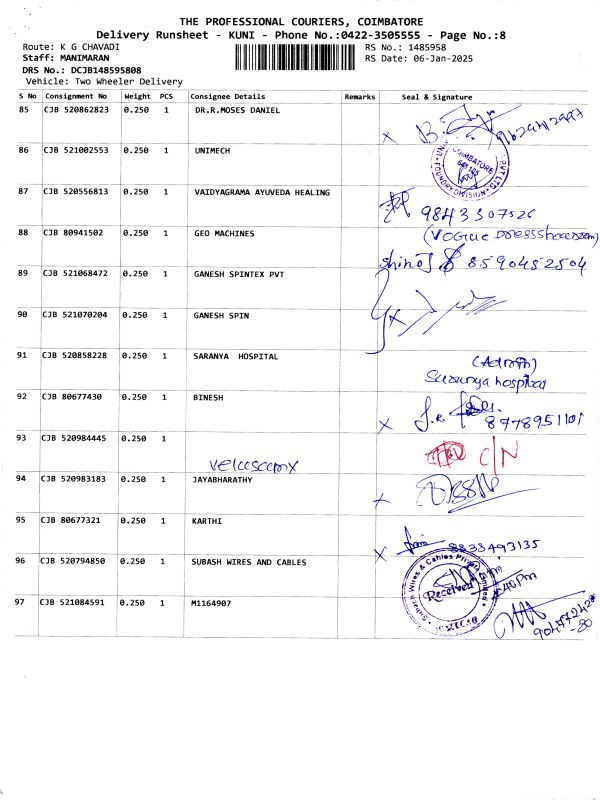 THE PROFESSIONAL COURIERS, COIMBATORE
Delivery Runsheet - KUNI - Phone No.:0422-3505555 - Page No.:8
Route: K G CHAVADI RS No.: 1485958
Staff: MANIMARAN RS Date: 06-Jan-2025
DRS No.: DCJB148595808
Vehicle: Two Wheeler Delivery
S No Consignment No Weight PCS Consignee Details Remarks Seal & Signature
85 CJB 520862823 0.250 1 DR.R.MOSES DANIEL
86 CJB 521002553 0.250 1 UNIMECH
COIMBATORE
FOUNDRY DIVISION
PVT LTD
87 CJB 520556813 0.250 1 VAIDYAGRAMA AYUVEDA HEALING
9843307526
88 CJB 80941502 0.250 1 GEO MACHINES
shinoj 8590452504
89 CJB 521068472 0.250 1 GANESH SPINTEX PVT
90 CJB 521070204 0.250 1 GANESH SPIN
91 CJB 520858228 0.250 1 SARANYA HOSPITAL
(Admin)
Saranya hospital
92 CJB 80677430 0.250 1 BINESH
8778951101
93 CJB 520984445 0.250 1
C/N
Velusamy
94 CJB 520983183 0.250 1 JAYABHARATHY
95 CJB 80677321 0.250 1 KARTHI
8838493135
96 CJB 520794850 0.250 1 SUBASH WIRES AND CABLES
Subash Wires & Cables Private Limited
Received
97 CJB 521084591 0.250 1 M1164907